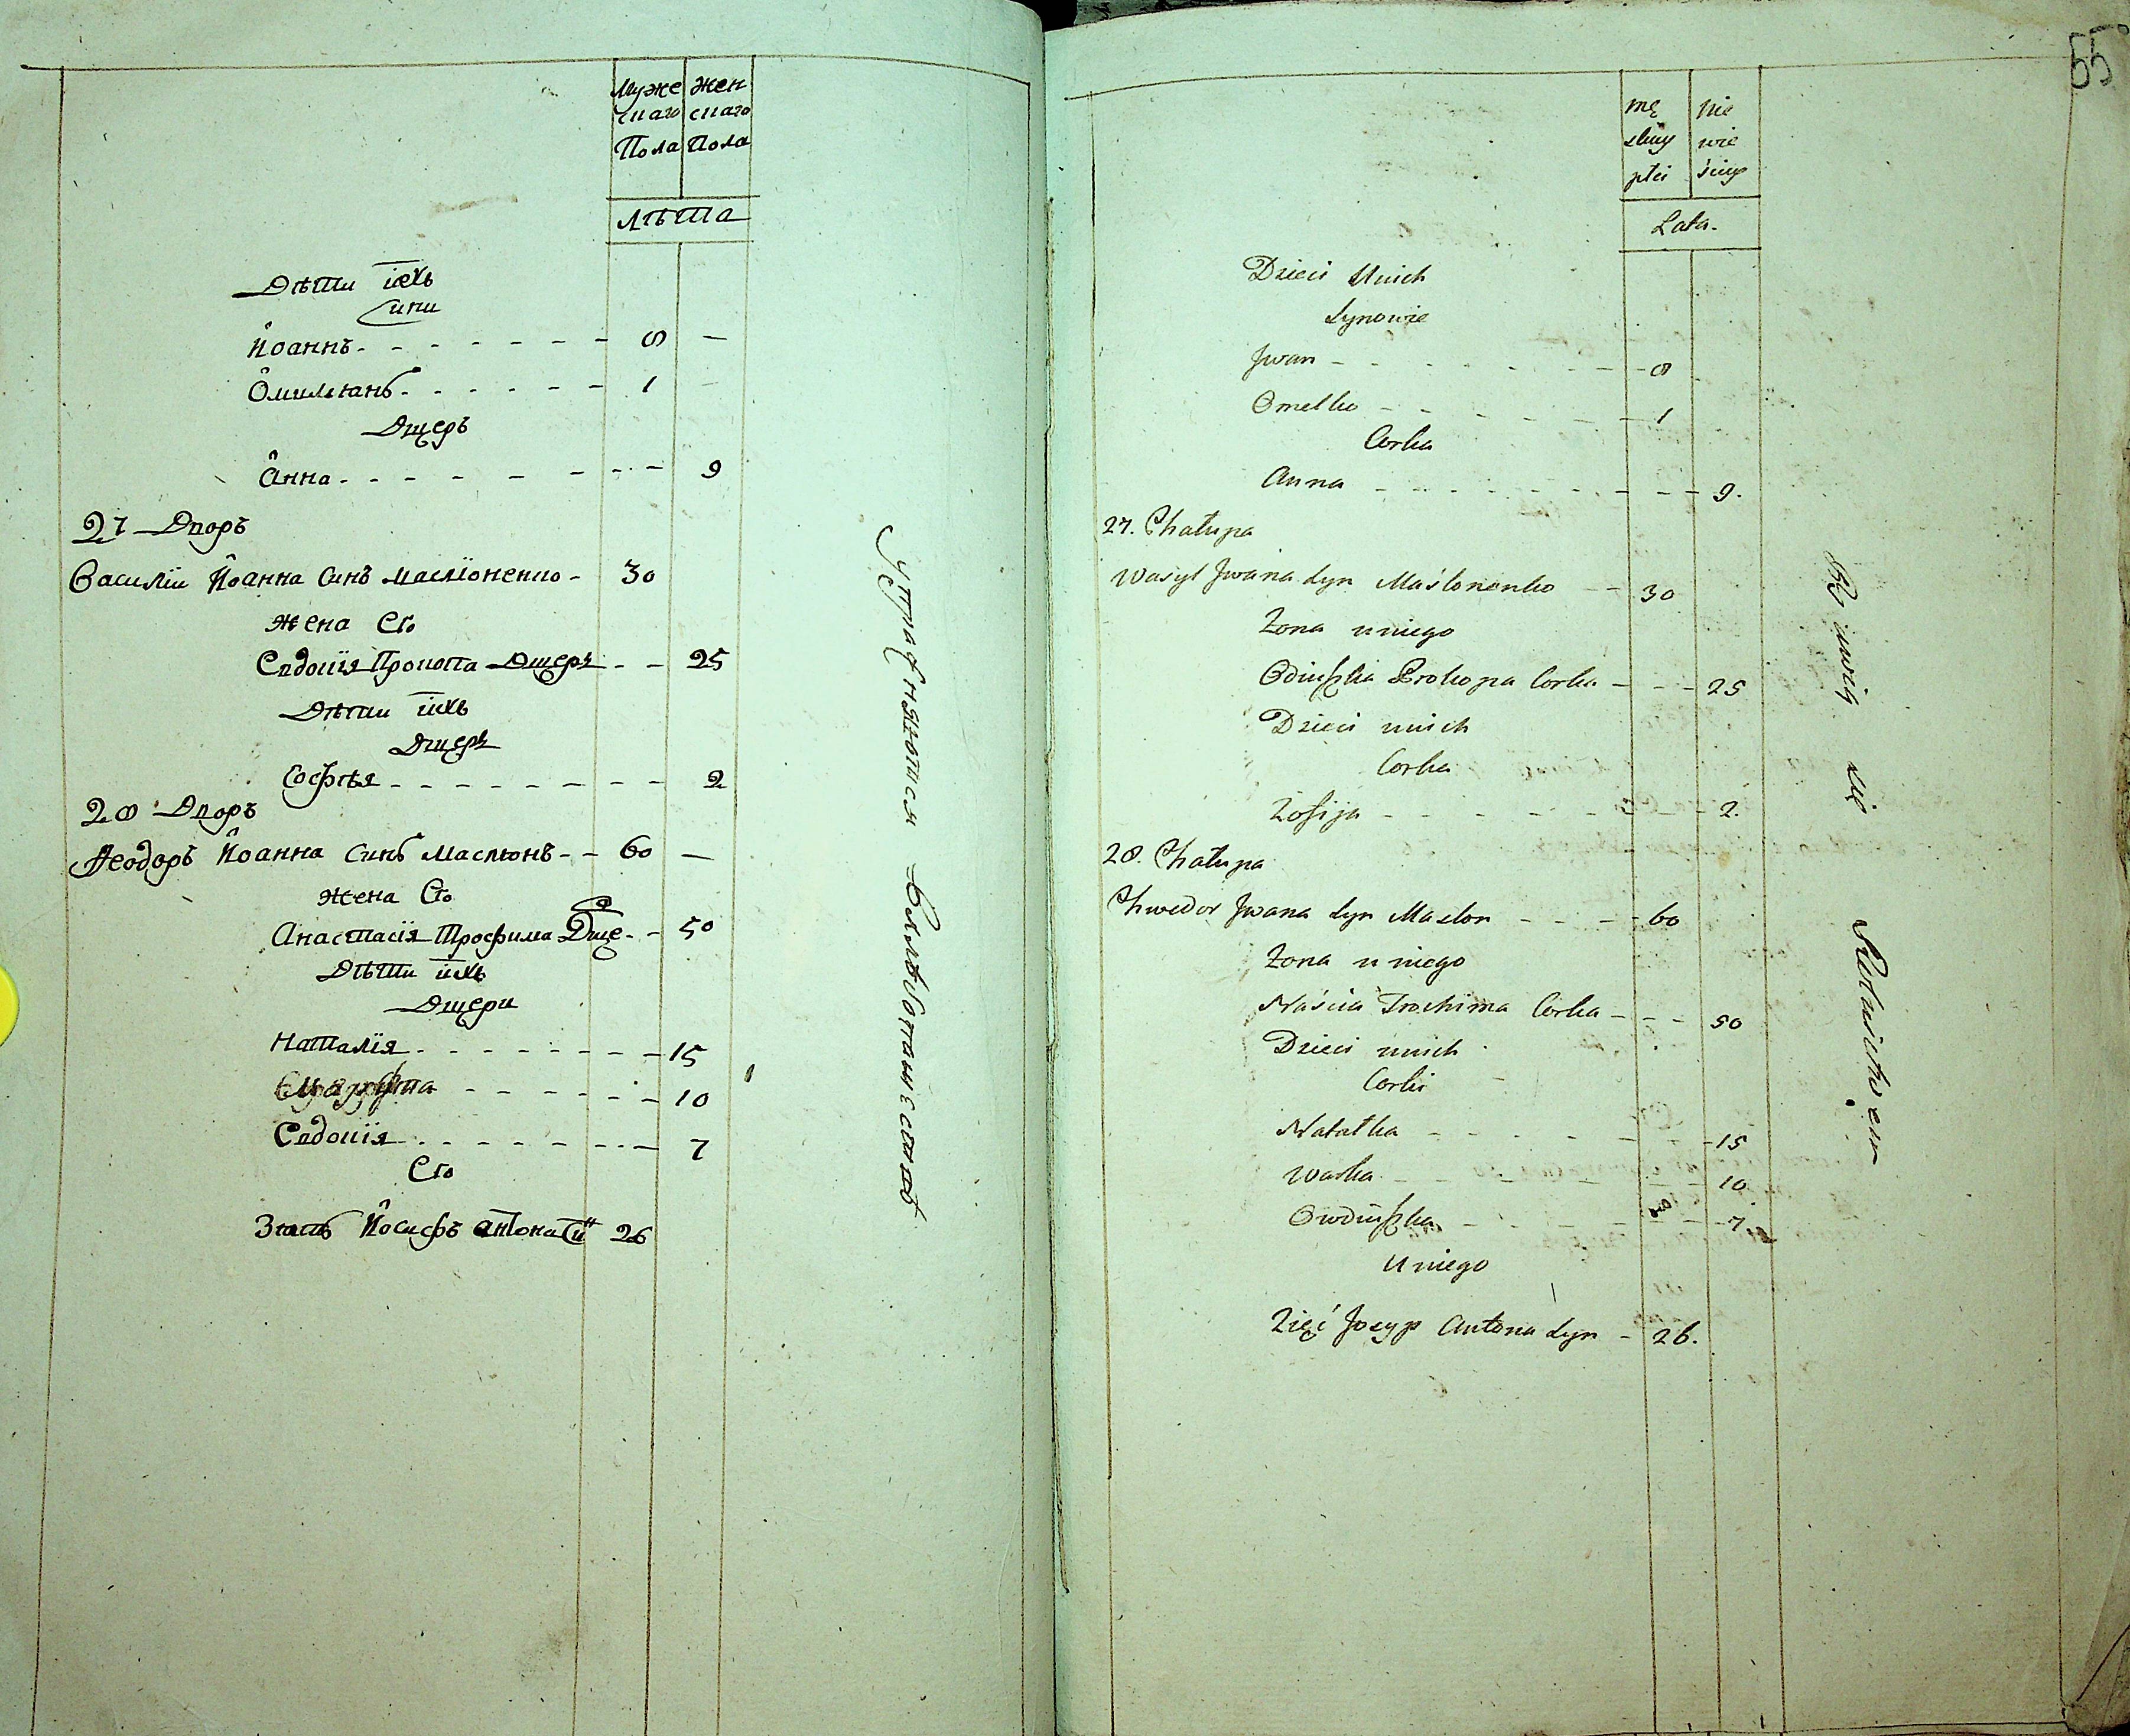 Муже жен
скаго скаго
Пола Пола
лѣта
Дѣти ихъ
Сини
Іоаннъ - - - - - - - 8 —
Омилианъ - - - - - - 1 —
Дщерь
Анна - - - - - - - - 9
27 Дворъ
Василїи Іоанна Синъ Маслїоненко - 30
жена Его
Евдокїя Прокопа Дщерь - - 25
Дѣти ихъ
Дщерь
Софѣя - - - - - - - - 2
28 Дворъ
Феодоръ Іоанна Синъ Маслюнъ - - 60 —
жена Его
Анастасїя Трофима Дще - - 50
Дѣти ихъ
Дщери
Наталїя - - - - - - - 15
- - - - - - 10
Евдокїя - - - - - - - 7
Его
Зять Іосифъ Антона Си 26
55
mę nie
skiey wie
płci ściey
Lata.
Dzieci Unich
Synowie
Jwan - - - - - - - 8
Omelko - - - - - - 1
Corka
Anna - - - - - - - - 9.
27. Chałupa
Wasyl Jwana Syn Maślonenko - - 30
Żona uniego
Odiuszka Prokopa Corka - - - 25
Dzieci unich
Corka
Zofija - - - - - - - 2.
28. Chałupa
Chwedor Jwana Syn Maslon - - - - 60
Żona u niego
Naścia Trochima Corka - - - 50
Dzieci unich
Corki
Natałka - - - - - - - 15
Warka - - - - - - 10
Owdiuszka - - - - - - 7
U niego
Zięć Josyp Antona Syn - 26.